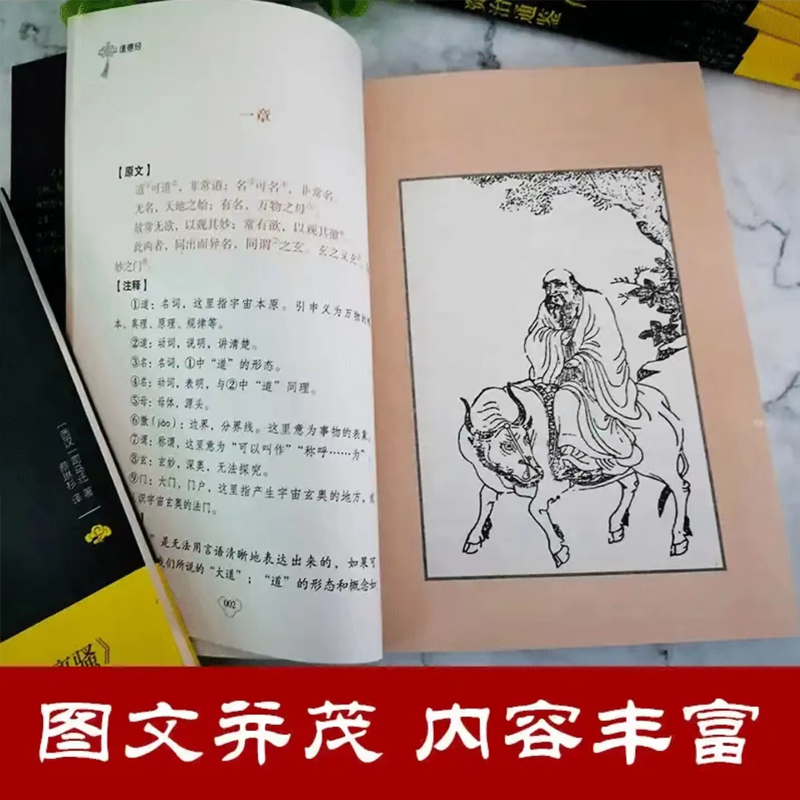 道德经
一章
【原文】
道①可道②，非常道；名③可名④，非常名
无名，天地之始；有名，万物之母⑤
故常无欲，以观其妙；常有欲，以观其徼⑥
此两者，同出而异名，同谓⑦之玄。玄之又玄⑧
妙之门⑨
【注释】
①道：名词，这里指宇宙本原。引申义为万物的
本、真理、原理、规律等。
②道：动词，说明，讲清楚。
③名：名词，①中“道”的形态。
④名：动词，表明，与②中“道”同理。
⑤母：母体，源头。
⑥徼（jiào）：边界，分界线。这里意为事物的表象
⑦道：称谓，这里意为“可以叫作”“称呼……为”
⑧玄：玄妙，深奥，无法探究。
⑨门：大门，门户，这里指产生宇宙玄奥的地方，
识宇宙玄奥的法门。
”是无法用言语清晰地表达出来的，如果可
我们所说的“大道”；“道”的形态和概念如
002
资治通鉴
［西汉］司马迁 著
译
离骚》
图文并茂 内容丰富